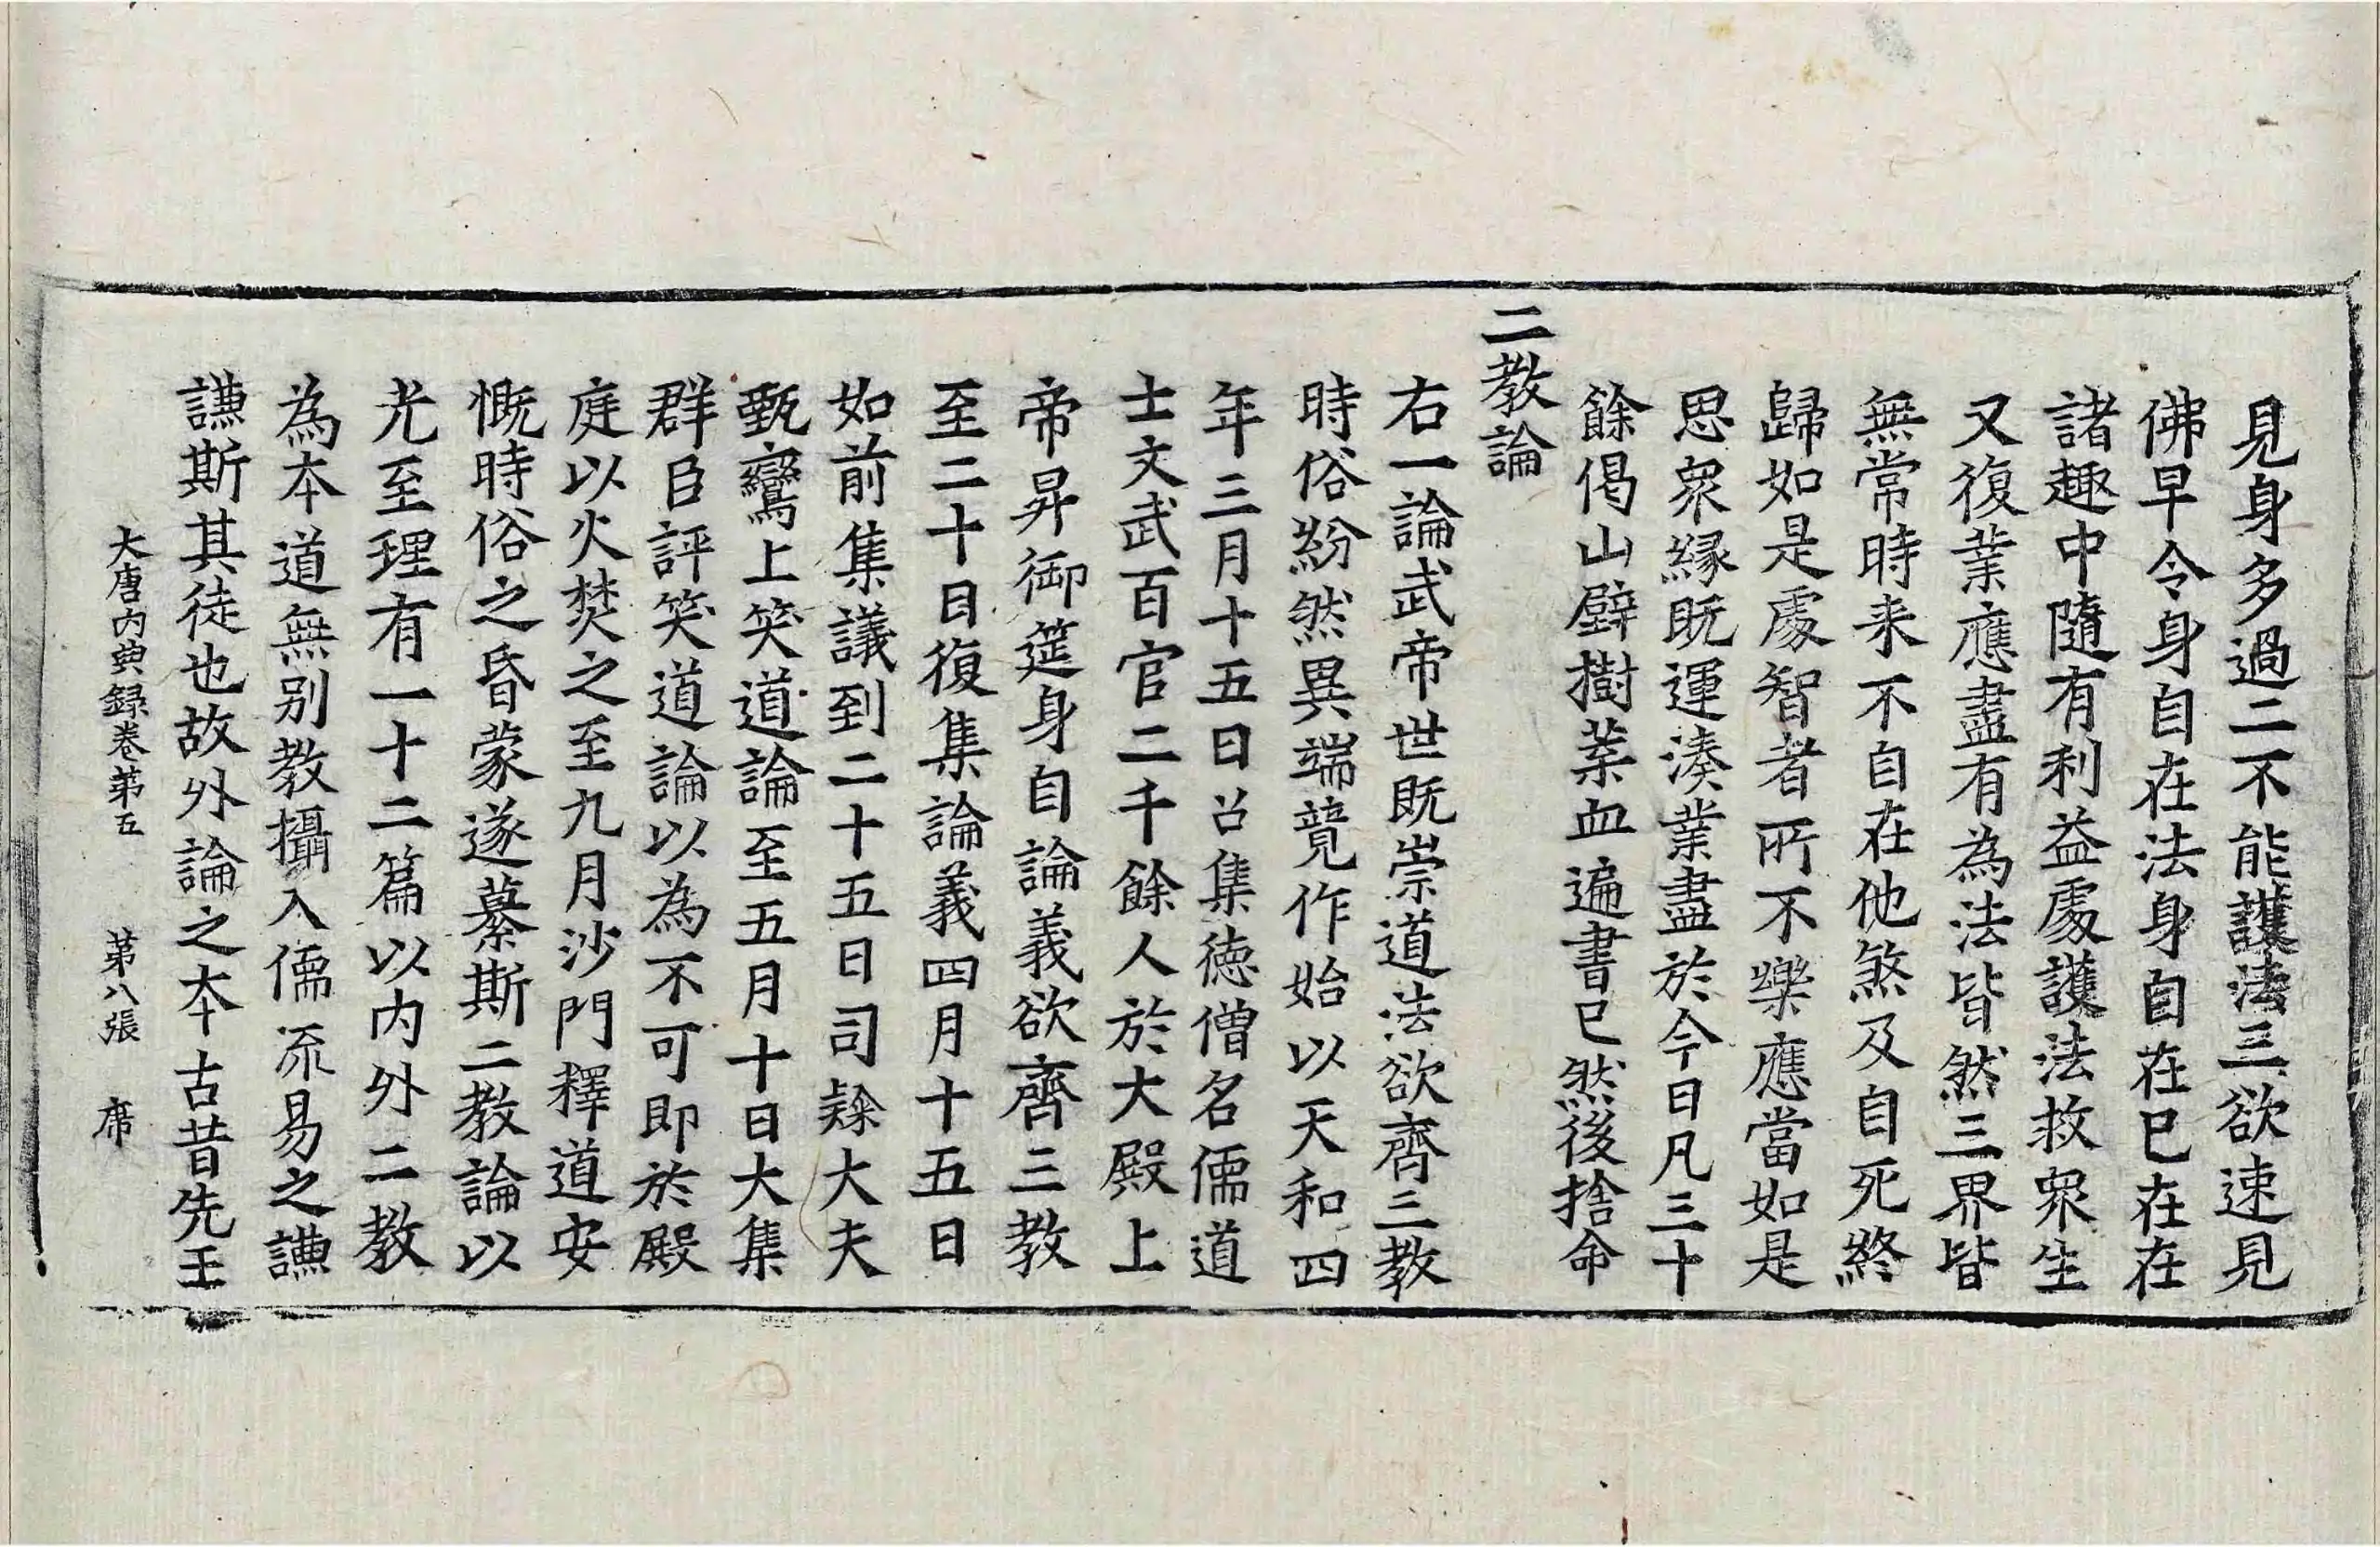 見身多過二不能護法三欲速見
佛早令身自在法身自在已在在
諸趣中隨有利益處護法救衆生
又復業應盡有為法皆然三界皆
無常時来不自在他煞及自死終
歸如是處智者所不樂應當如是
思衆緣既運湊業盡於今日凡三十
餘偈山壁樹葉血遍書已然後捨命
二教論
右一論武帝世既崇道法欲齊三教
時俗紛然異端競作始以天和四
年三月十五日召集德僧名儒道
士文武百官二千餘人於大殿上
帝昇御筵身自論義欲齊三教
至二十日復集論義四月十五日
如前集議到二十五日司隸大夫
甄鸞上笑道論至五月十日大集
群臣評笑道論以為不可即於殿
庭以火焚之至九月沙門釋道安
慨時俗之昏蒙遂纂斯二教論以
光至理有一十二篇以内外二教
為本道無別教攝入儒流易之謙
謙斯其徒也故外論之本古昔先王
大唐内典録卷第五　第八張　席